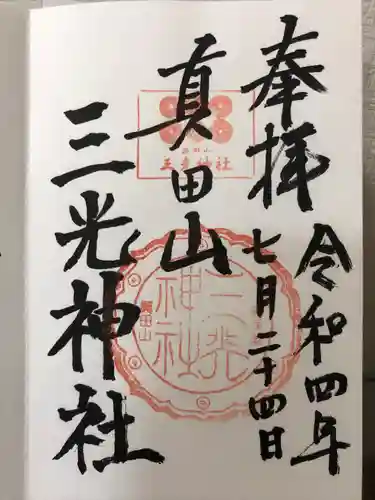 奉拝
令和四年
七月二十四日
真田山
三光神社
真田山
三光神社
真田山
三光神社